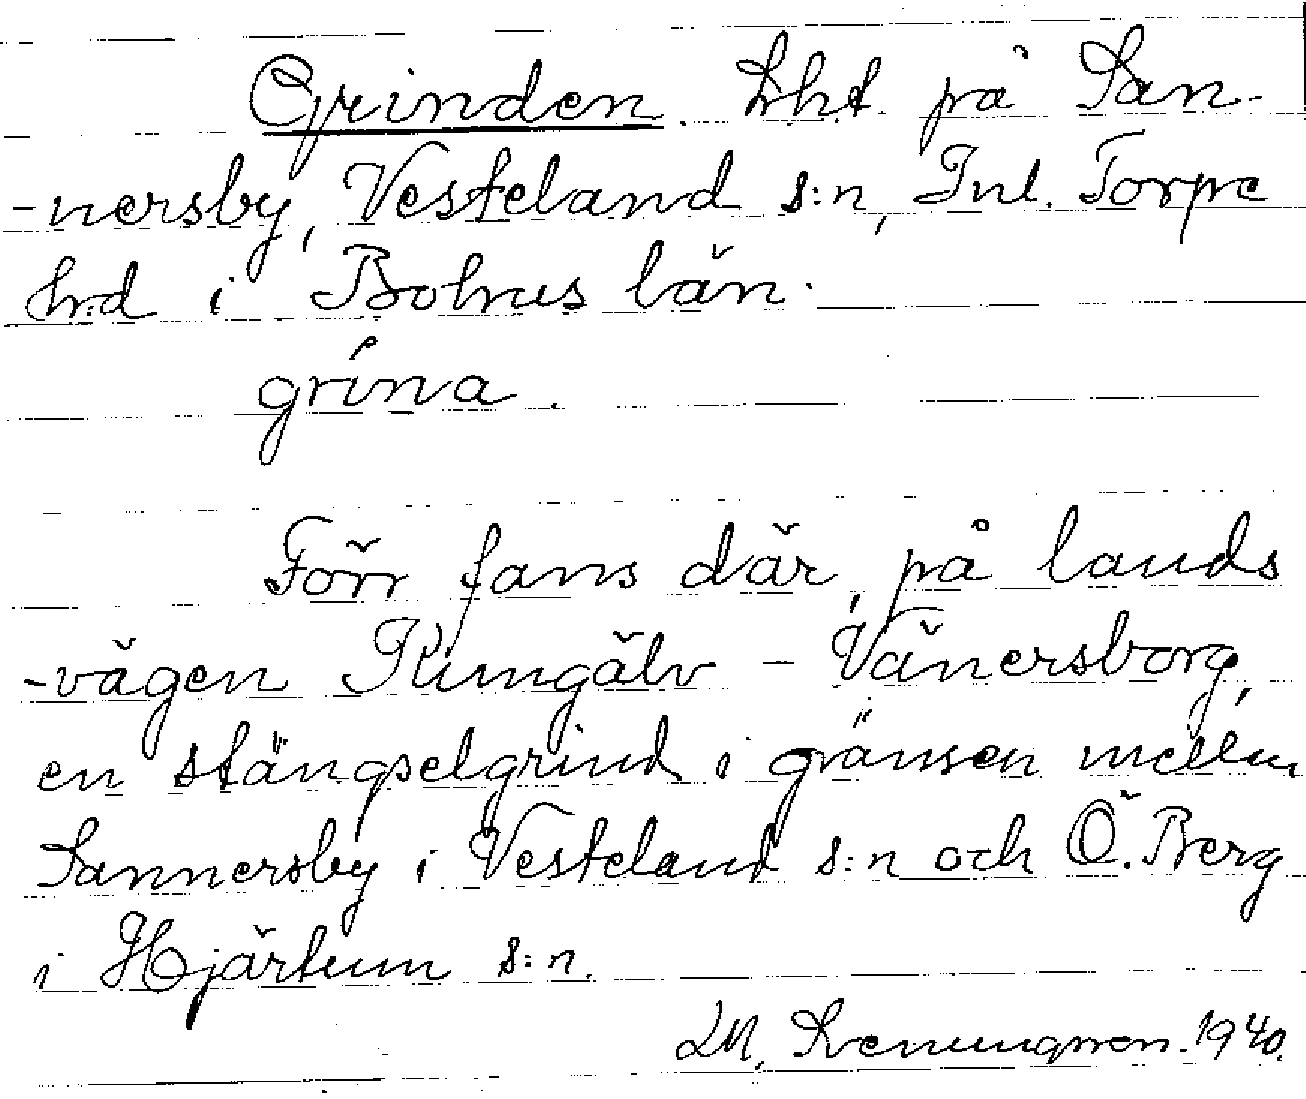 Grinden. Lht. på San-
-nersby, Vesteland s:n, Inl. Torpe
hrd i Bohus län.
grína.
Förr fans där, på lands
-vägen Kungälv - Vänersborg,
en stängselgrind i gränsen mellan
Sannersby i Vesteland s:n och Ö. Berg
i Hjärtum s:n.
1940.